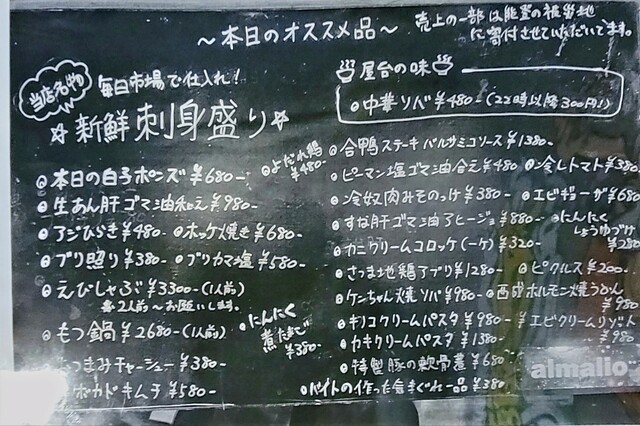 〜本日のオススメ品〜
売上の一部は能登の被災地
に寄付させていただいてます。
当店名物
毎日市場で仕入れ!
☆新鮮刺身盛り☆
屋台の味
中華ソバ¥480-(22時以降300円!)
本日の白子ポンズ¥680-
よだれ鶏
¥480-
生あん肝ゴマ油和え¥980-
アジひらき¥480-
ホッケ焼き¥680-
ブリ照り¥380-
ブリカマ塩¥580-
えびしゃぶ¥3300-(1人前)
※2人前〜お願いします。
もつ鍋¥2680-(1人前)
にんにく
煮たまご
¥380-
つまみチャーシュー¥380-
ボカドキムチ¥580-
合鴨ステーキバルサミコソース¥1380-
ピーマン塩ゴマ油合え¥480
冷しトマト¥380-
冷奴肉みそのっけ¥380-
エビギョーザ¥680
すな肝ゴマ油アヒージョ¥880-
にんにく
しょうゆづけ
¥280-
カニクリームコロッケ(一ケ)¥320-
さつま地鶏アブリ¥1280-
ピクルス¥200-
ケンちゃん焼ソバ¥980-
西成ホルモン焼うどん
¥980-
キノコクリームパスタ¥980-
エビクリームリゾット
¥980
カキクリームパスタ¥1380-
特製豚の軟骨煮¥680-
バイトの作った気まぐれ一品¥380
almalio